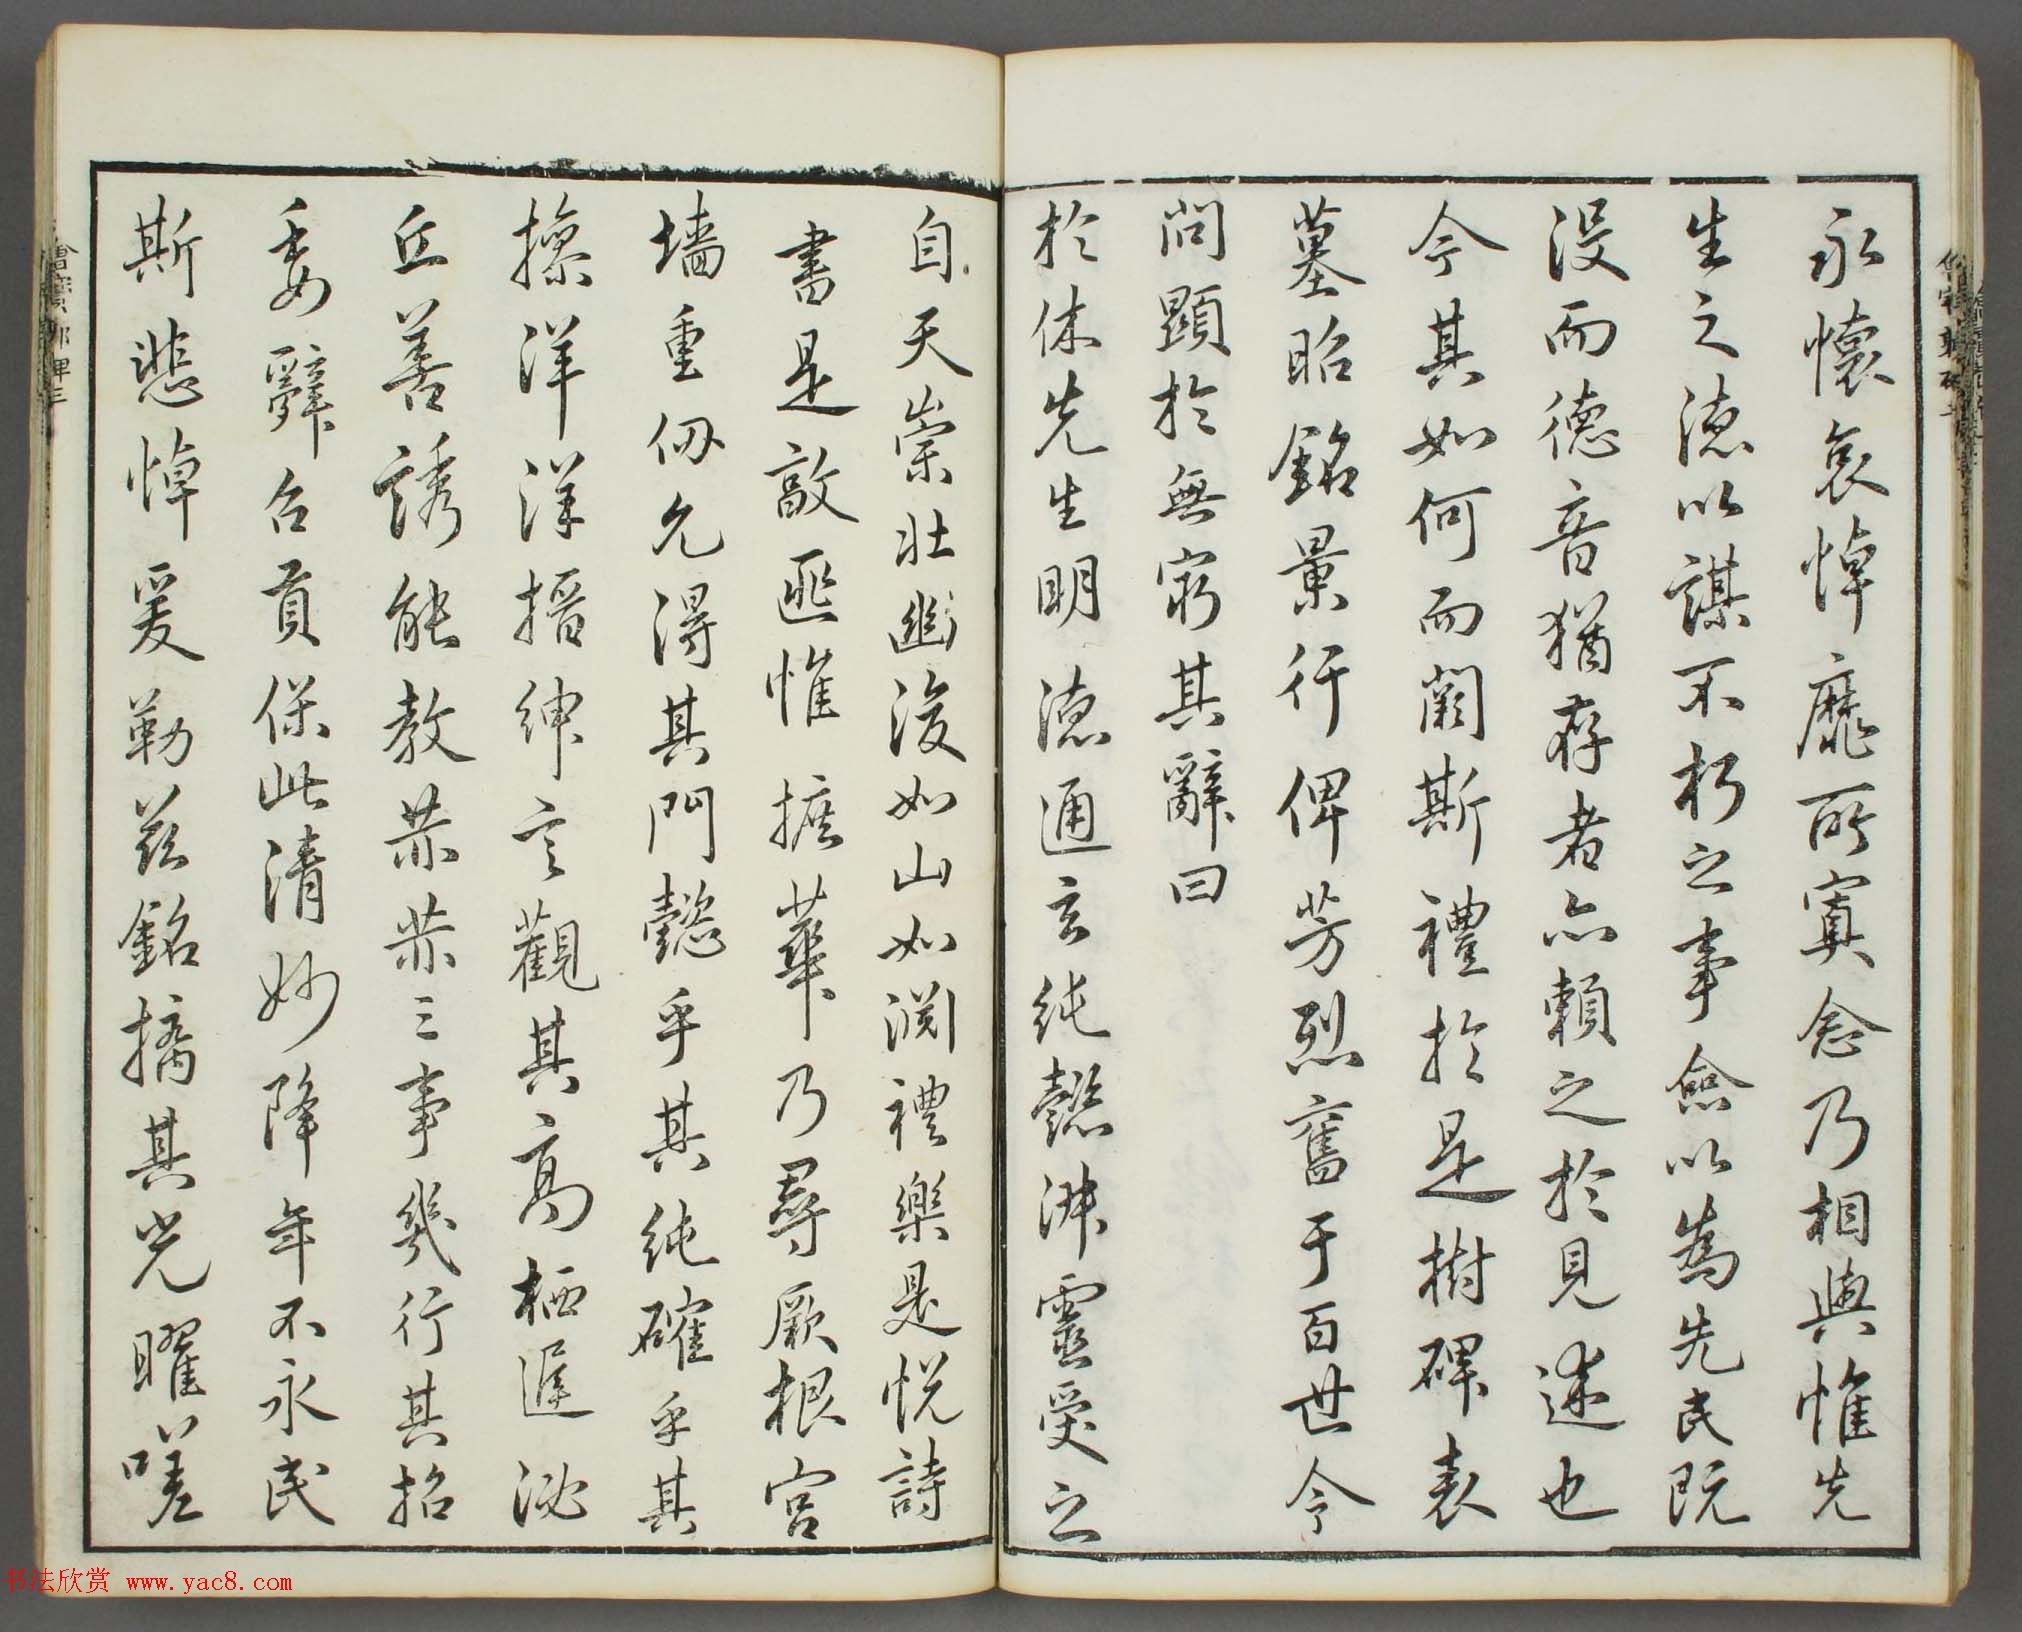 永懷哀悼靡所寘念乃相與惟先
生之德以謀不朽之事僉以為先民既
没而德音猶存者亦頼之於見述也
今其如何而闕斯禮於是樹碑表
墓昭銘景行俾芳烈奮于百世令
問顯於無窮其辭曰
於休先生明德通玄純懿淋靈受之
自天崇壯幽浚如山如渕禮樂是悦詩
書是敦匪惟摭華乃尋厥根宫
墻重仞允得其門懿乎其純確乎其
操洋洋搢紳言觀其高栖遲泌
丘善誘能教赫赫三事幾行其招
委辭召貢保此清妙降年不永民
斯悲悼爰勒兹銘摛其光曜嗟
书法欣赏 www.yac8.com